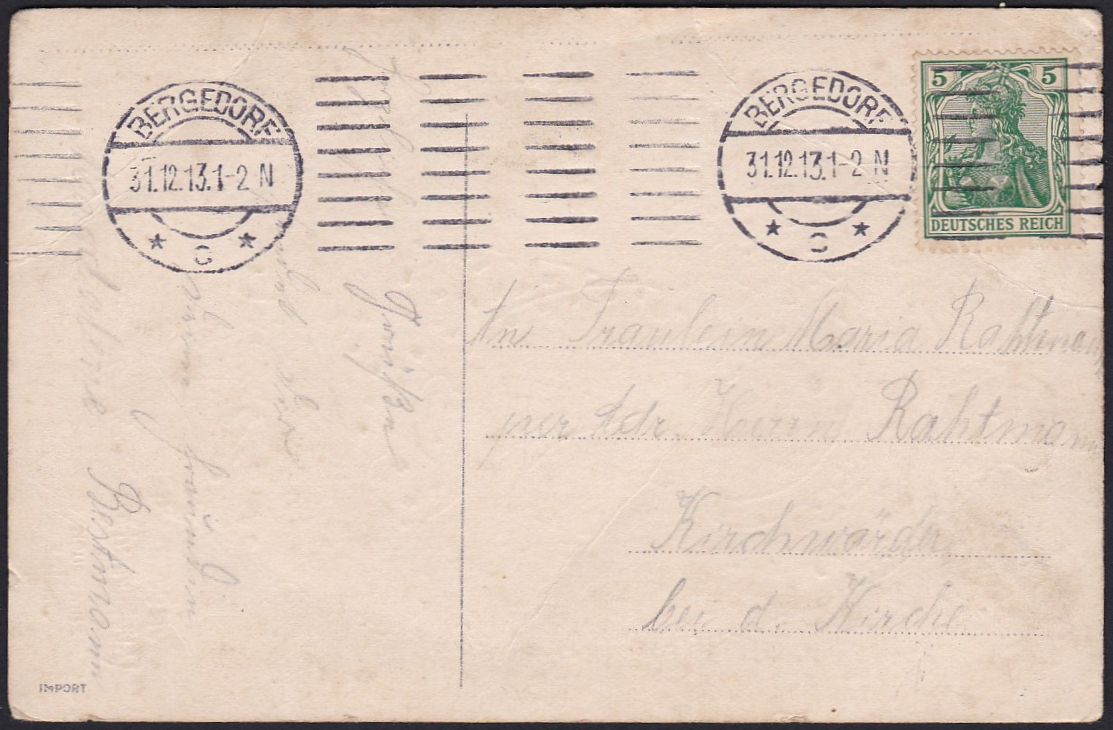 BERGEDORF
31.12.13.1-2 N
* c *
BERGEDORF
31.12.13.1-2 N
* c *
5 5
DEUTSCHES REICH
An Fräulein Maria Rahtmann
per Adr Herrn Rahtmann
Kirchwärder
bei d. Kirche
Grüßen
Freundin
Bestmann
IMPORT